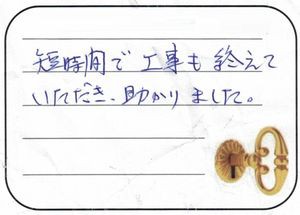 短時間で工事も終えて
いただき、助かりました。